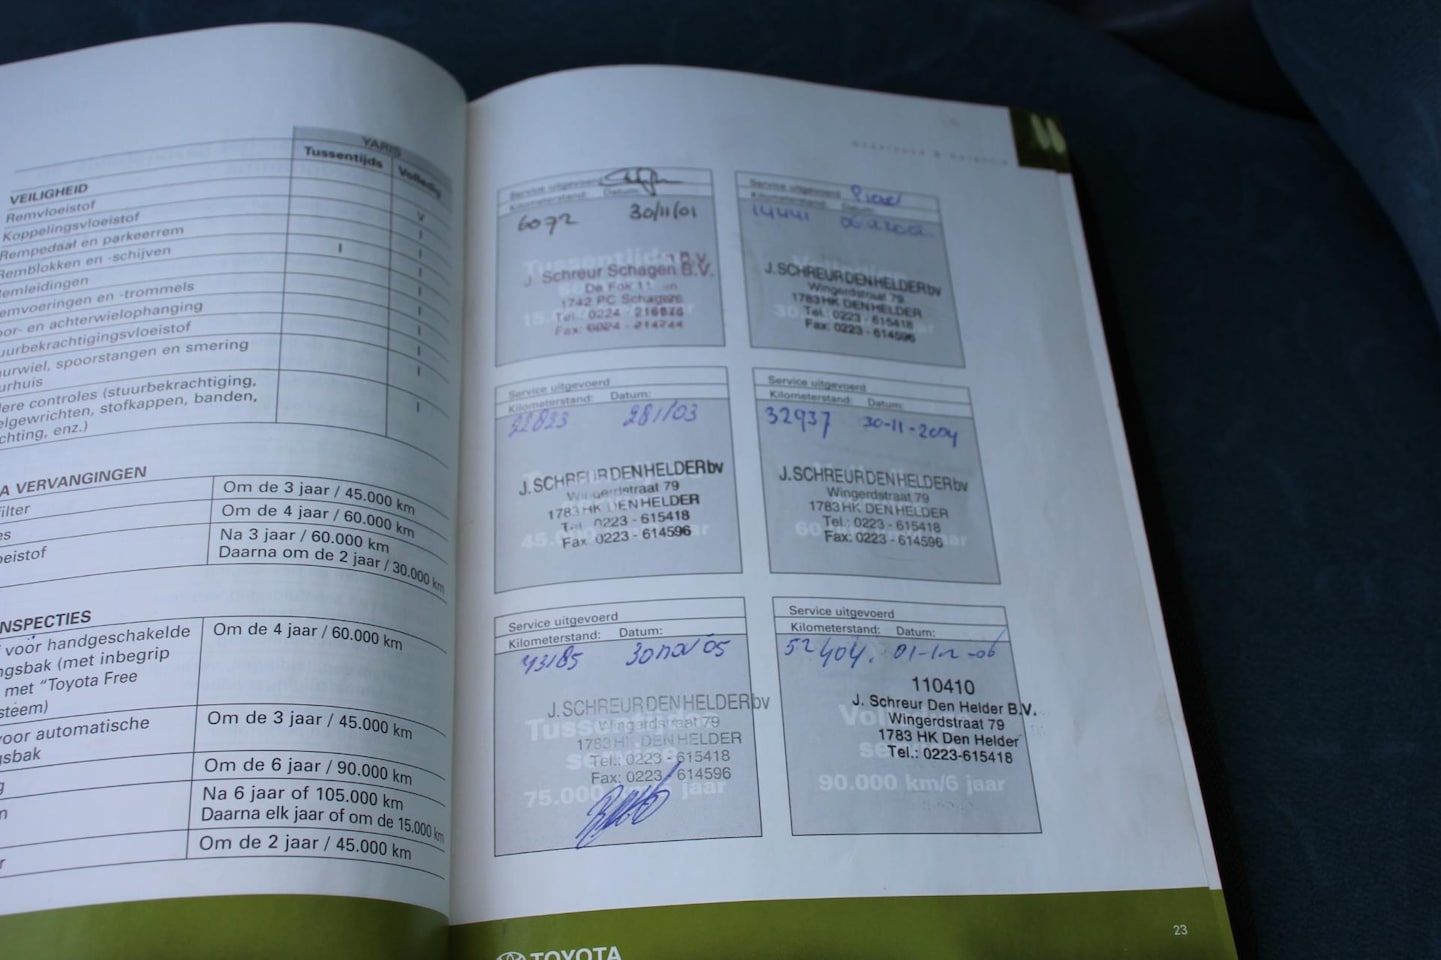 YARIS
Tussentijds Volledig
VEILIGHEID
Remvloeistof V
Koppelingsvloeistof I
Rempedaal en parkeerrem I
Remblokken en -schijven I I
emleidingen I
emvoeringen en -trommels I
oor- en achterwielophanging I
uurbekrachtigingsvloeistof I
urwiel, spoorstangen en smering I
urhuis
lere controles (stuurbekrachtiging, I
elgewrichten, stofkappen, banden,
chting, enz.)
A VERVANGINGEN
filter Om de 3 jaar / 45.000 km
es Om de 4 jaar / 60.000 km
oeistof Na 3 jaar / 60.000 km
Daarna om de 2 jaar / 30.000 km
NSPECTIES
voor handgeschakelde Om de 4 jaar / 60.000 km
ngsbak (met inbegrip
met "Toyota Free
steem)
voor automatische Om de 3 jaar / 45.000 km
gsbak
g Om de 6 jaar / 90.000 km
n Na 6 jaar of 105.000 km
Daarna elk jaar of om de 15.000 km
r Om de 2 jaar / 45.000 km
Service uitgevoerd
Kilometerstand: Datum:
6072 30/11/01
Tussentijds
J. Schreur Schagen B.V.
De Fok 11
1742 PC Schagen
Tel. 0224 - 216676
Fax:
Service uitgevoerd
Kilometerstand: Datum:
14441
J.SCHREUR DEN HELDER bv
Wingerdstraat 79
1783 HK DEN HELDER
Tel.: 0223 - 615418
Fax: 0223 - 614596
Service uitgevoerd
Kilometerstand: Datum:
22823 281103
J.SCHREUR DEN HELDER bv
Wingerdstraat 79
1783 HK DEN HELDER
Tel.: 0223 - 615418
Fax: 0223 - 614596
Service uitgevoerd
Kilometerstand: Datum:
32937 30-11-2004
J.SCHREUR DEN HELDER bv
Wingerdstraat 79
1783 HK DEN HELDER
Tel.: 0223 - 615418
Fax: 0223 - 614596
Service uitgevoerd
Kilometerstand: Datum:
43185 30 nov 05
J.SCHREUR DEN HELDER bv
Wingerdstraat 79
1783 HK DEN HELDER
Tel.: 0223 - 615418
Fax: 0223 / 614596
75.000 jaar
Service uitgevoerd
Kilometerstand: Datum:
52404. 01-12-06
110410
J. Schreur Den Helder B.V.
Wingerdstraat 79
1783 HK Den Helder
Tel.: 0223-615418
90.000 km/6 jaar
TOYOTA
23